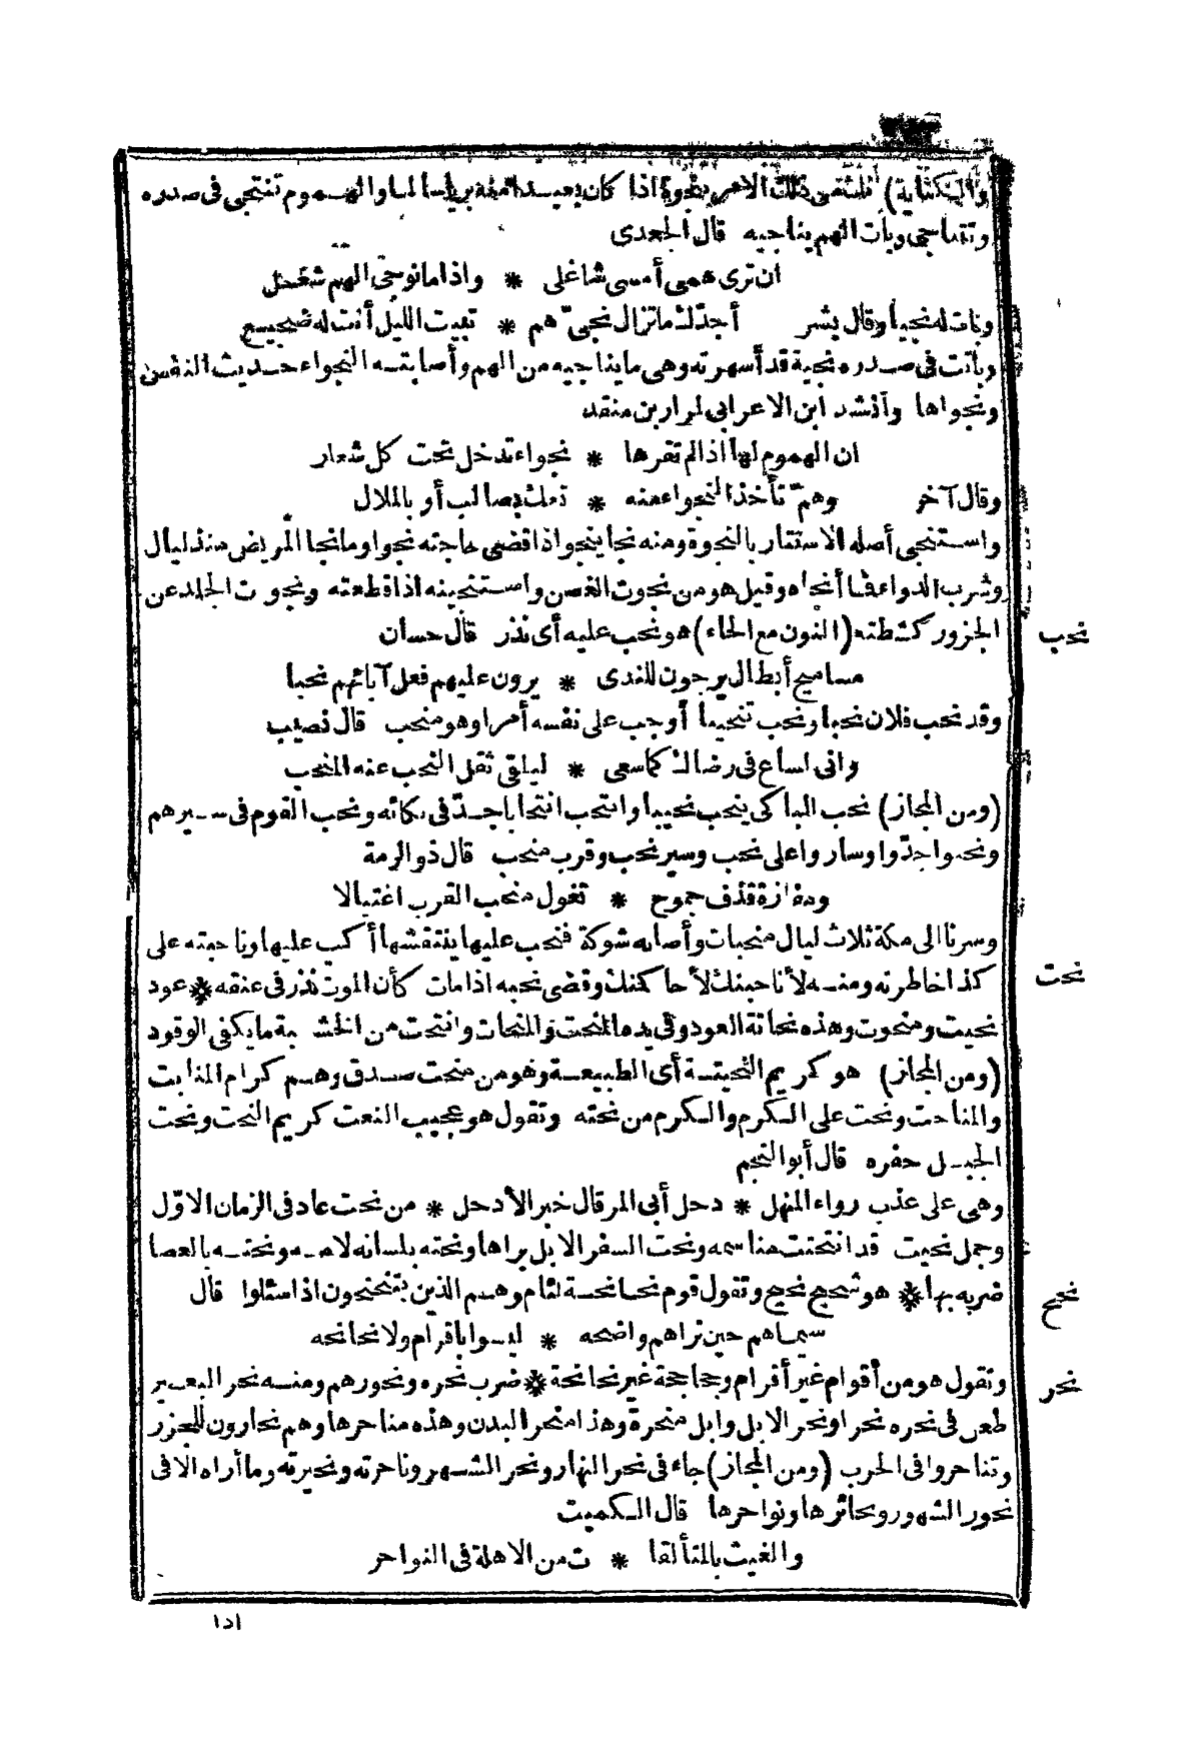 (والكناية) فلتنقى ذلك الامر بنجوة اذا كان بعيدا منه بريأ سالما والهموم تنتجى فى صدره
وتتناجى وبات الهم يناجيه قال الجعدى
ان ترى همى أمسى شاغلى * واذا ما نوجى الهم شغل
وبات له نجيا وقال بشر أجدّك ما تزال نجىّ هم * تبيت الليل أنت له ضجيع
وباتت فى صدره نجية قد أسهرته وهى ما يناجيه من الهم وأصابته النجواء حديث النفس
ونجواها وأنشد ابن الاعرابى لمرار بن منقد
ان الهموم لها اذا لم تقرها * نجواء تدخل تحت كل شعار
وقال آخر وهمّ تأخذ النجواء منه * تعك بصالب أو بالملال
واستنجى أصله الاستتار بالنجوة ومنه نجا ينجو اذا قضى حاجته نجوا وما نجا المريض منذ ليال
وشرب الدواء فما أنجاه وقيل هو من نجوت الغصن واستنجيته اذا قطعته ونجوت الجلد عن
الجزور كشطته (النون مع الحاء) هو نحب عليه أى نذر قال حسان
نحب
مساميح أبطال يرجون للندى * يرون عليهم فعل آبائهم نحبا
وقد نحب فلان نحبا ونحب تنحيبا أوجب على نفسه أمرا وهو منحب قال نصيب
وانى لساع فى رضاك كما سعى * ليلقى ثقل النحب عنه المنحب
(ومن المجاز) نحب الباكى ينحب نحيبا وانتحب انتحابا جدّ فى بكائه ونحب القوم فى سيرهم
ونحبوا جدّوا وساروا على نحب وسير نحب وقرب منحب قال ذو الرمة
ومفازة قذف جموح * تغول منحب القرب اغتيالا
وسرنا الى مكة ثلاث ليال منحبات وأصابه شوكة فنحب عليها ينتقشها أكب عليها وناحبته على
كذا خاطرته ومنه لأناحبنك لأحاكمنك وقضى نحبه اذا مات كأن الموت نذر فى عنقه * عود
نحت
نحيت ومنحوت وهذه نحاتة العود وفى يده المنحت والمنحات وانتحت من الخشبة ما يكفى الوقود
(ومن المجاز) هو كريم النحيتة أى الطبيعة وهو من منحت صدق وهم كرام المنابت
والمناحت ونحت على الكرم والكرم من نحته وتقول هو عجيب النعت كريم النحت ونحت
الجبل حفره قال أبو النجم
وهى على عذب رواء المنهل * دحل أبى المرقال خير الأدحل * من نحت عاد فى الزمان الاوّل
وجمل نحيت قد انتحتت مناسمه ونحت السفر الابل براها ونحته بلسانه لامه ونحته بالعصا
ضربه بها * هو شحيح نحيح وتقول قوم نحانحة لئام وهم الذين يتنحنحون اذا سئلوا قال
نحح
سيماهم حين تراهم واضحه * ليسوا باقرام ولا نحانحه
وتقول هو من أقوام غير أقرام وجحاجحة غير نحانحة * ضرب نحره ونحورهم ومنه نحر البعير
نحر
طعن فى نحره نحرا ونحر الابل وابل منحرة وهذا منحر البدن وهذه مناحرها وهم نحارون للجزر
وتناحروا فى الحرب (ومن المجاز) جاء فى نحر النهار ونحر الشهر وناحرته ونحيرته وما أراه الا فى
نحور الشهور ونحائرها ونواحرها قال الكميت
والغيث بالمتألقا * ت من الاهلة فى النواحر